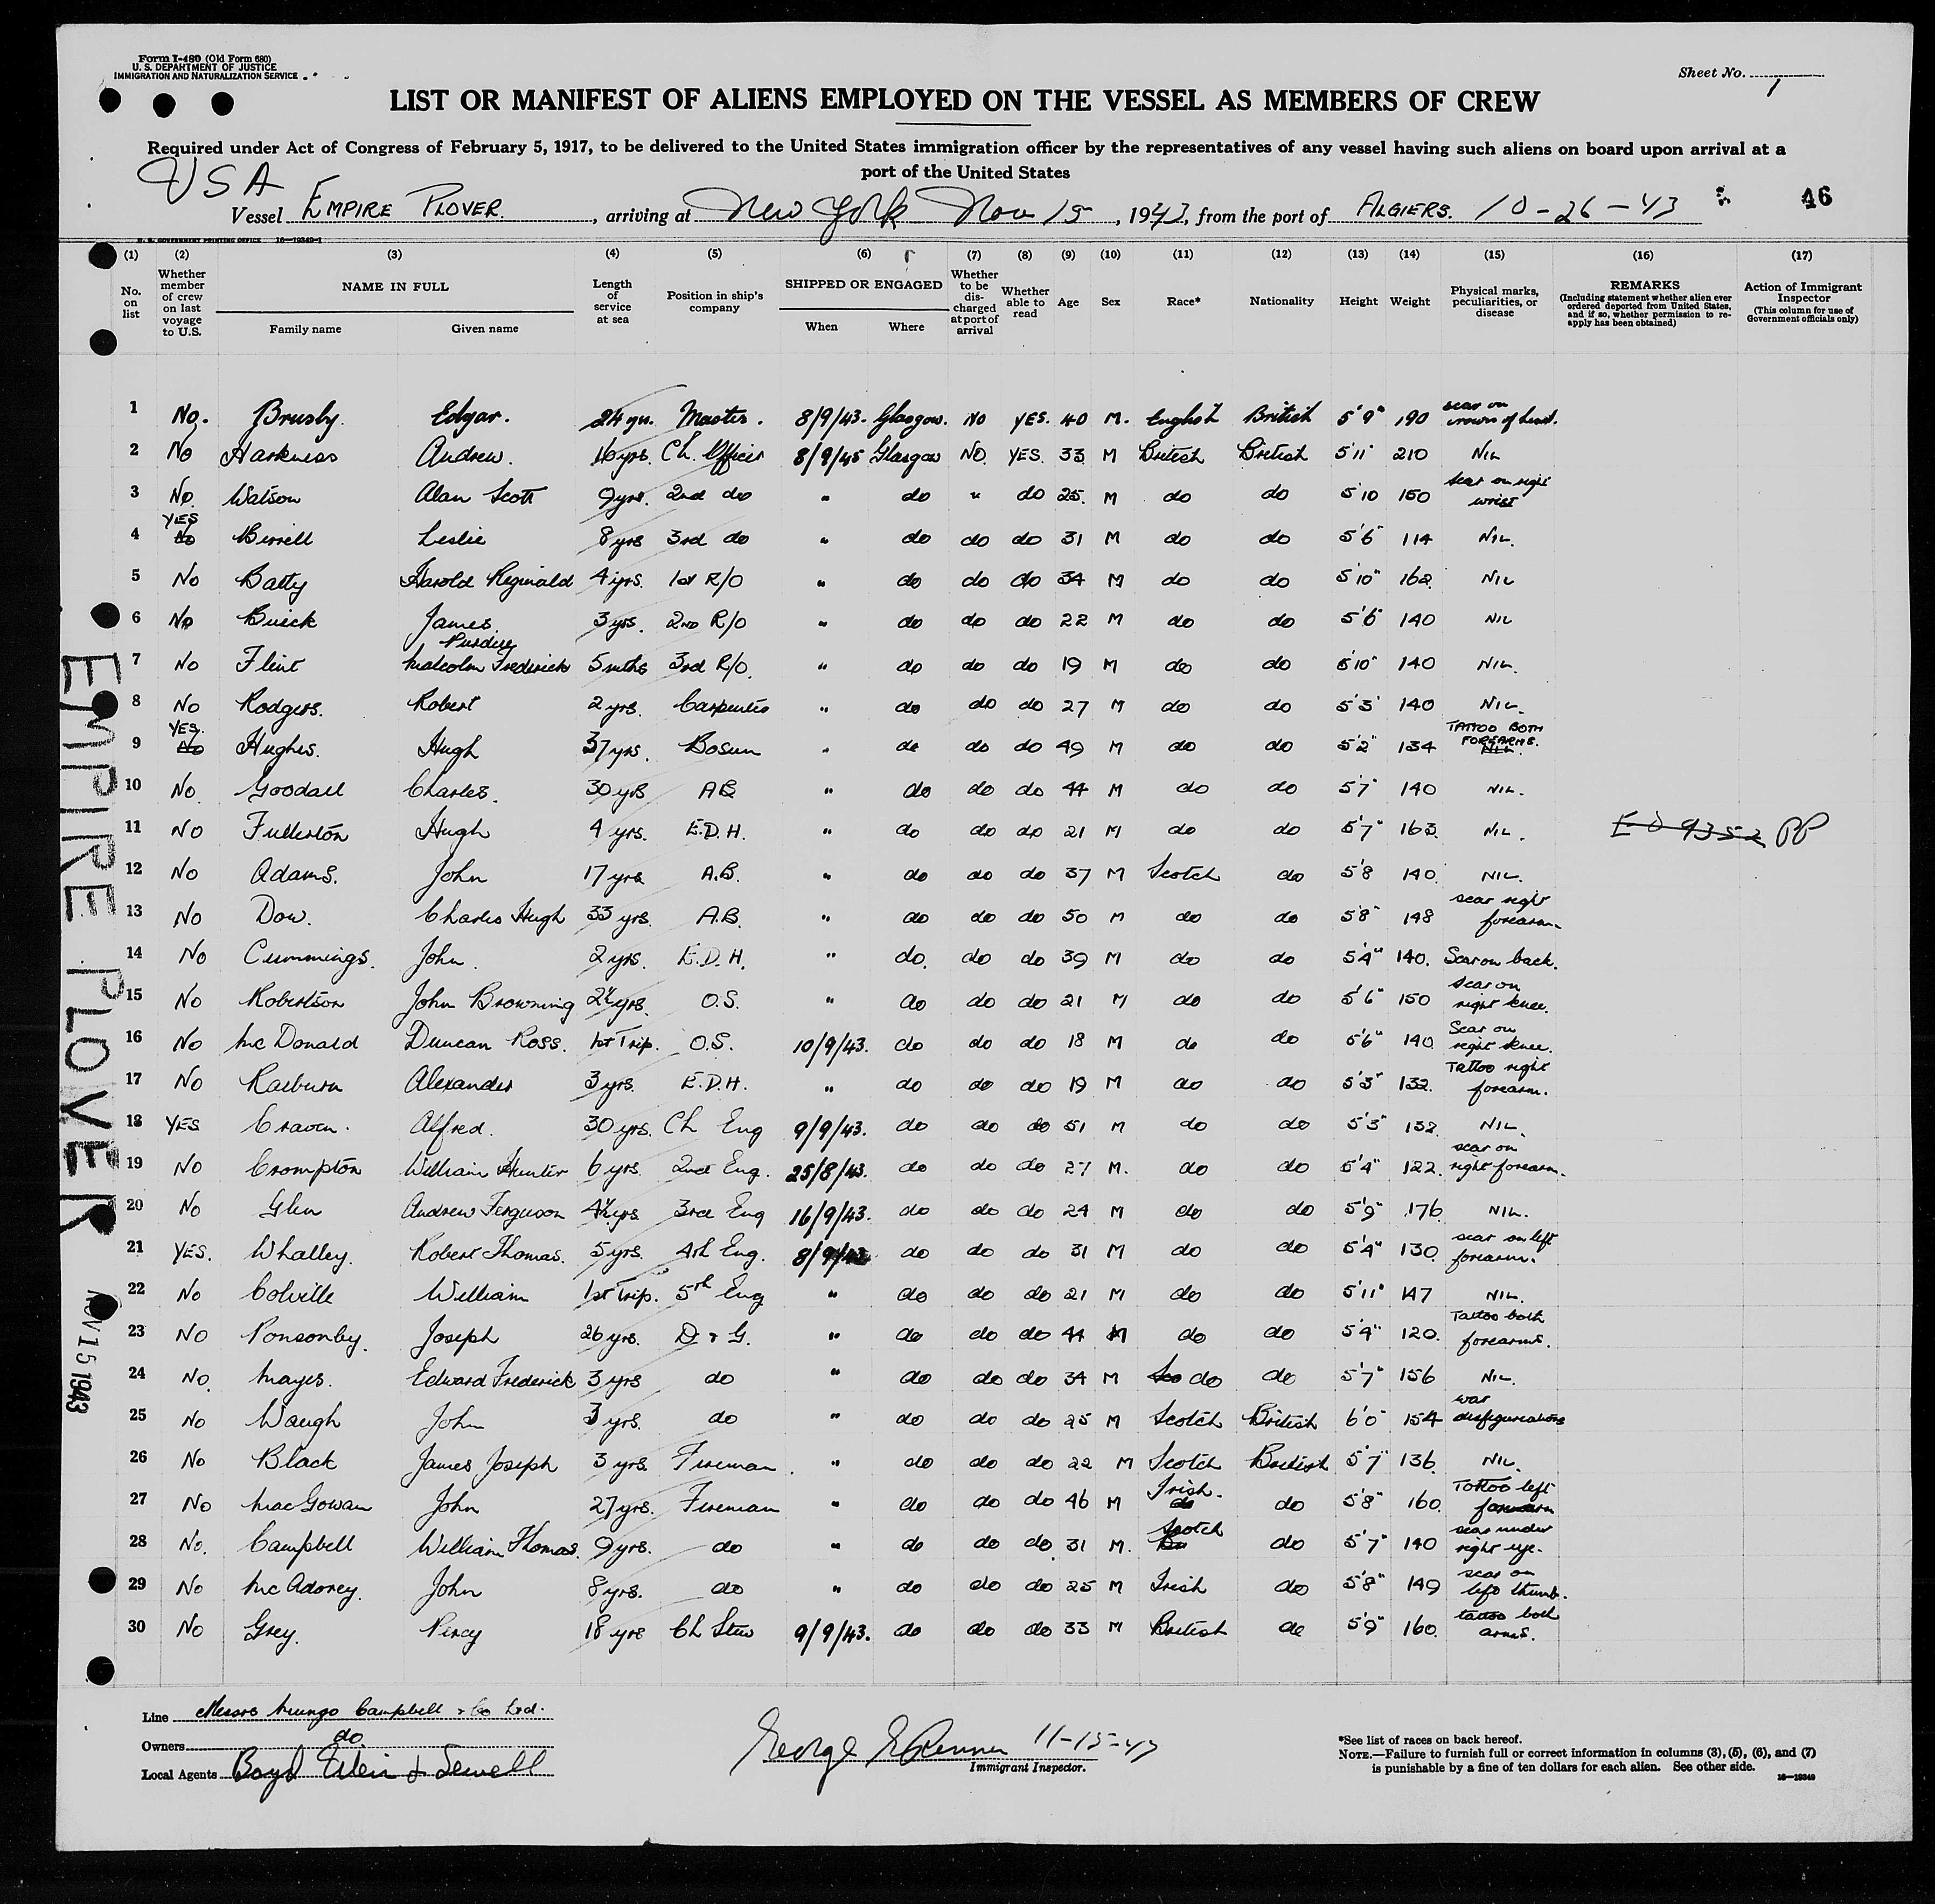 Form I-480 (Old Form 680)
U. S. DEPARTMENT OF JUSTICE
IMMIGRATION AND NATURALIZATION SERVICE
Sheet No. 1
LIST OR MANIFEST OF ALIENS EMPLOYED ON THE VESSEL AS MEMBERS OF CREW
Required under Act of Congress of February 5, 1917, to be delivered to the United States immigration officer by the representatives of any vessel having such aliens on board upon arrival at a
port of the United States
USA
Vessel EMPIRE PLOVER., arriving at New York Nov 15, 1943, from the port of ALGIERS. 10-26-43
46
U. S. GOVERNMENT PRINTING OFFICE 16—19349-1
(1) (2) (3) (4) (5) (6) (7) (8) (9) (10) (11) (12) (13) (14) (15) (16) (17)
No. on list
Whether member of crew on last voyage to U.S.
NAME IN FULL
Family name Given name
Length of service at sea
Position in ship's company
SHIPPED OR ENGAGED
When Where
Whether to be discharged at port of arrival
Whether able to read
Age Sex Race* Nationality Height Weight
Physical marks, peculiarities, or disease
REMARKS
(Including statement whether alien ever ordered deported from United States, and if so, whether permission to reapply has been obtained)
Action of Immigrant Inspector
(This column for use of Government officials only)
1 No. Brusby. Edgar. 24 yrs. Master. 8/9/43. Glasgow. NO YES. 40 M. English British 5'9" 190 scar on crown of head.
2 No Harkness Andrew. 16yrs. Ch. Officer 8/9/43 Glasgow NO. YES. 33 M British British 5'11" 210 NIL
3 No. Watson Alan Scott 9yrs. 2nd do " do " do 25. M do do 5'10 150 scar on right wrist
4 YES No Birrell Leslie 8yrs 3rd do " do do do 31 M do do 5'6" 114 NIL.
5 No Batty Harold Reginald 4yrs. 1st R/O " do do do 34 M do do 5'10" 162 NIL
6 No Buick James Purdie 3yrs. 2ND R/O " do do do 22 M do do 5'6" 140 NIL
7 No Flint Malcolm Frederick 5mths 3rd R/O. " do do do 19 M do do 5'10" 140 NIL.
8 No Rodgers. Robert 2 yrs. Carpenter " do do do 27 M do do 5'3" 140 NIL.
9 YES. No Hughes. Hugh 37yrs. Bosun " do do do 49 M do do 5'2" 134 TATTOO BOTH FOREARMS. NIL.
10 No. Goodall Charles. 30 yrs AB " do do do 44 M do do 5'7" 140 NIL.
11 No Fullerton Hugh 4 yrs. E.D.H. " do do do 21 M do do 5'7" 163. NIL. E O 9352 PP
12 No Adams. John 17 yrs A.B. " do do do 37 M Scotch do 5'8 140. NIL.
13 No Dow. Charles Hugh 33 yrs. A.B. " do do do 50 M do do 5'8" 148 scar right forearm.
14 No Cummings. John. 2 yrs. E.D.H. " do. do do 39 M do do 5'4" 140. Scar on back.
15 No Robertson John Browning 2½yrs. O.S. " do do do 21 M do do 5'6" 150 scar on right knee.
16 No McDonald Duncan Ross. 1st Trip. O.S. 10/9/43. do do do 18 M do do 5'6" 140. Scar on right knee.
17 No Raeburn Alexander 3yrs. E.D.H. " do do do 19 M do do 5'3" 132. Tattoo right forearm.
18 YES Craven. Alfred. 30 yrs. Ch Eng 9/9/43. do do do 51 M do do 5'3" 132. NIL.
19 No Crompton William Hunter 6 yrs. 2nd Eng. 25/8/43. do do do 27 M. do do 5'4" 122. scar on right forearm.
20 No Glen Andrew Ferguson 4½yrs 3rd Eng 16/9/43. do do do 24 M do do 5'9" 176. NIL.
21 YES. Whalley. Robert Thomas. 5yrs. 4th Eng. 8/9/43 do do do 31 M do do 5'4" 130. scar on left forearm.
22 No Colville William 1st Trip. 5th Eng " do do do 21 M do do 5'11" 147 NIL.
23 No Ponsonby. Joseph 26 yrs. D & G. " do do do 44 M do do 5'4" 120. Tattoo both forearms.
24 No. Mayes. Edward Frederick 3 yrs do " do do do 34 M Sco do do 5'7" 156 NIL.
25 No Waugh John 3 yrs. do " do do do 25 M Scotch British 6'0" 154 war disfigurations
26 No Black James Joseph 3 yrs Fireman. " do do do 22 M Scotch British 5'7" 136. NIL.
27 No MacGowan John 27yrs. Fireman " do do do 46 M Irish. do do 5'8" 160. Tattoo left forearm
28 No. Campbell William Thomas. 9yrs. do " do do do 31 M. Scotch do 5'7" 140 scar under right eye.
29 No McAdorey. John 8yrs. do " do do do 25 M Irish do 5'8" 149 scar on left thumb.
30 No Grey. Percy 18 yrs Ch Stew 9/9/43. do do do 33 M British do 5'9" 160. tattoo both arms.
EMPIRE PLOVER
NOV 15 1943
Line Messrs Mungo Campbell & Co Ltd.
Owners do.
Local Agents Boyd Weir & Sewell
George E Renner 11-15-43
Immigrant Inspector.
*See list of races on back hereof.
NOTE.—Failure to furnish full or correct information in columns (3), (5), (6), and (7)
is punishable by a fine of ten dollars for each alien. See other side.
16—19349